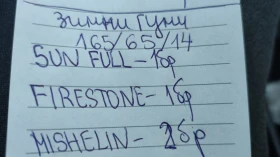 зимни гуми
165/65/14
SUN FULL - 1бр
FIRESTONE - 1бр
MISHELIN - 2бр